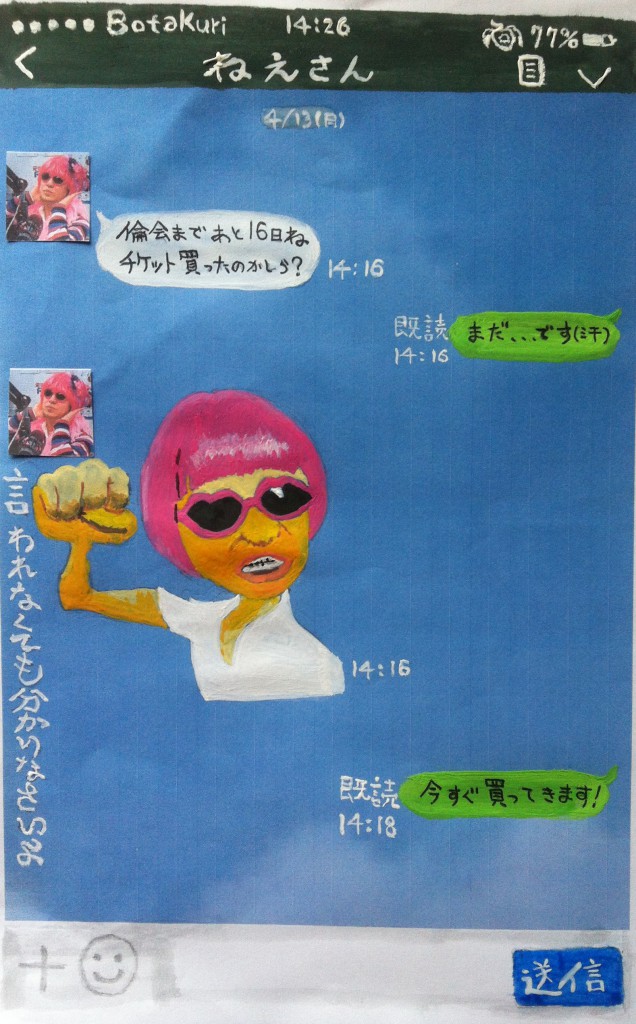 BotaKuri 14:26 77%
ねえさん
4/13(月)
倫会まであと16日ね
チケット買ったのかしら?
14:16
まだ、、、です(ミ汗)
既読
14:16
言われなくても分かりなさいよ
14:16
今すぐ買ってきます!
既読
14:18
送信